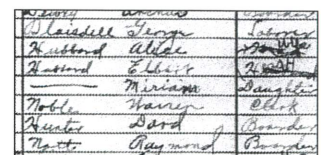 Blaisdell George Laborer
Hubbard Alice Wife
Hubbard Elbert H
Miriam Daughter
Noble Warren Clerk
Hunter Dard Boarder
Nott Raymond Boarder